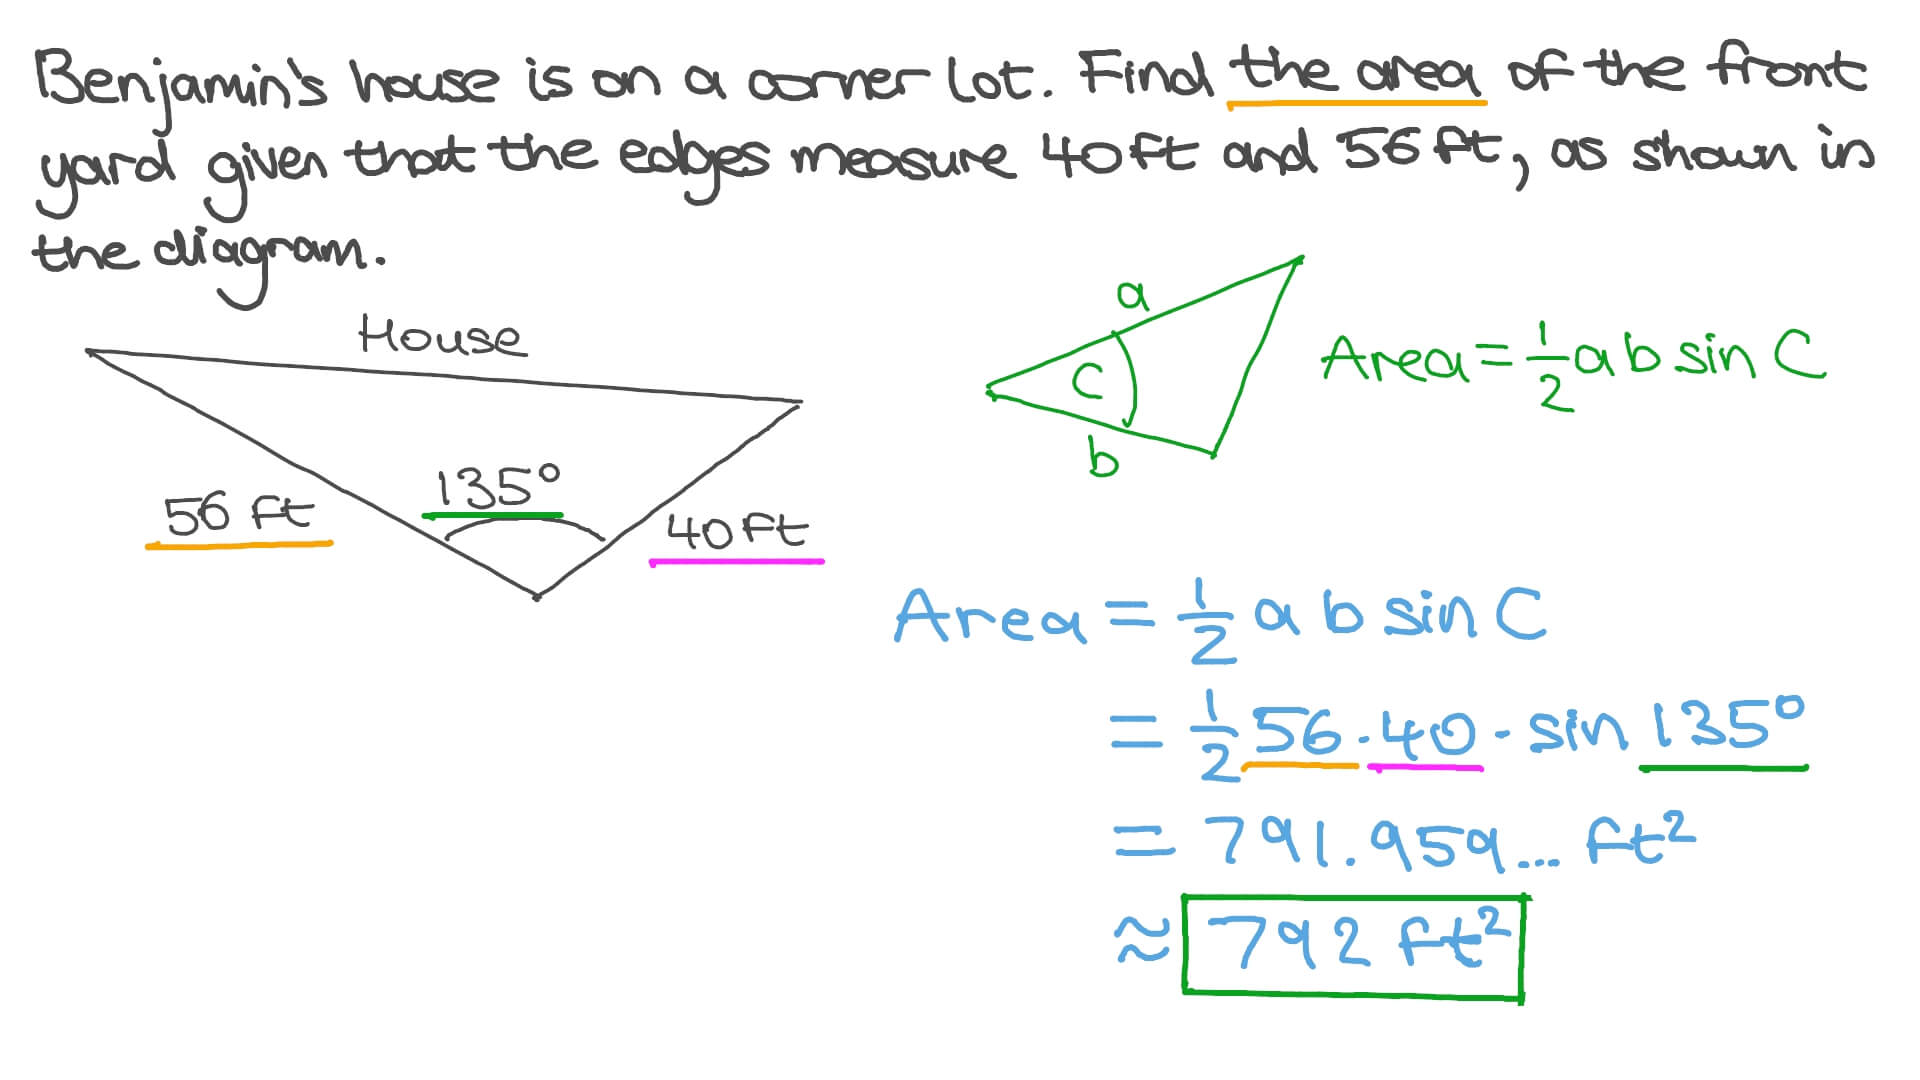 Benjamin's house is on a corner lot. Find the area of the front
yard given that the edges measure 40ft and 56ft, as shown in
the diagram.
House
56 ft
135°
40ft
a
C
b
Area = 1/2 a b sin C
Area = 1/2 a b sin C
= 1/2 56 · 40 · sin 135°
= 791.959... ft²
≈ 792 ft²